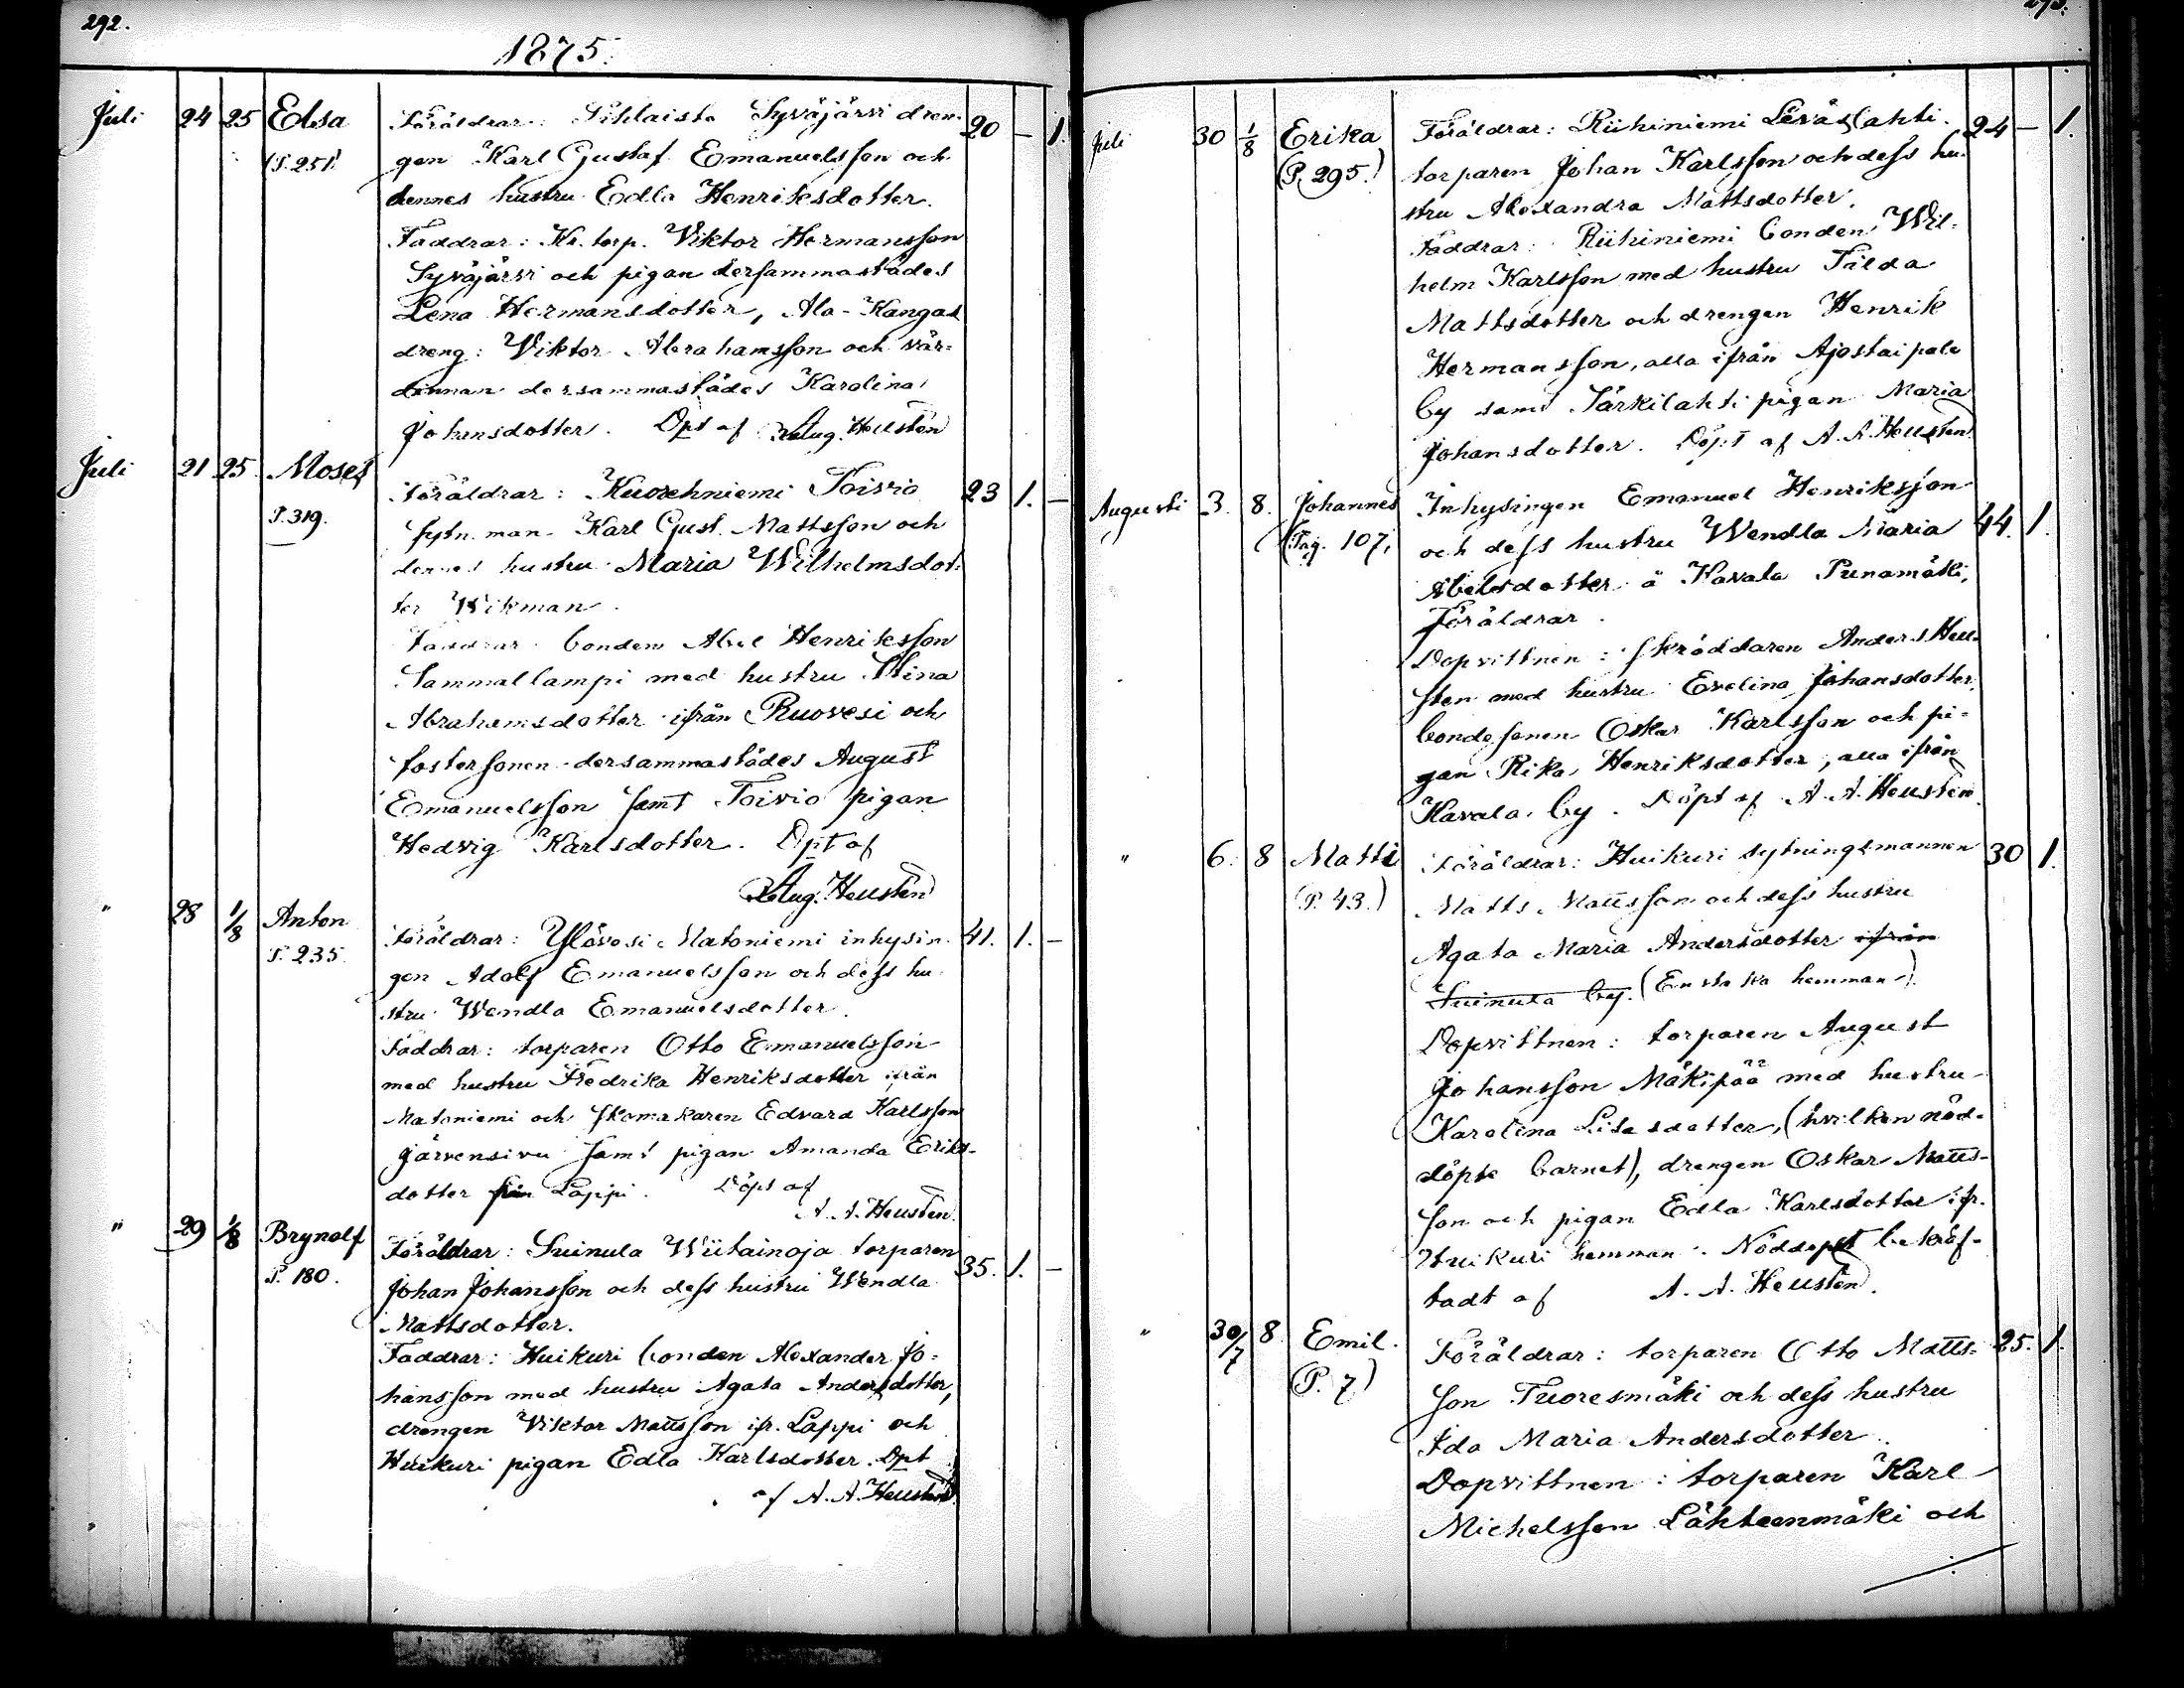 292.
1875.
Juli 24 25 Elsa Föräldrar: Sihlaista Syväjärvi dren- 20 – 1.
(P. 251) gen Karl Gustaf Emanuelsson och
dennes hustru Edla Henriksdotter.
Faddrar: Kr. torp. Viktor Hermansson
Syväjärvi och pigan dersammastädes
Lena Hermansdotter, Ala-Kangas
dreng: Viktor Abrahamsson och vär-
dinnan dersammastädes Karolina
Johansdotter. Dpt af Aug. Heusten
Juli 21 25 Moses Föräldrar: Kuorehniemi Toivio 23 1. –
P. 319. sytn. man Karl Gust. Mattsson och
dennes hustru Maria Wilhelmsdot-
ter Wikman.
Faddrar: bonden Abel Henriksson
Sammallampi med hustru Stina
Abrahamsdotter ifrån Ruovesi och
fostersonen dersammastädes August
Emanuelsson samt Toivio pigan
Hedvig Karlsdotter. Dpt af
Aug. Heusten
" 28 1/8 Anton Föräldrar: Ylövesi Matoniemi inhysin- 41. 1. –
P. 235. gen Adolf Emanuelsson och dess hu-
stru Wendla Emanuelsdotter.
Faddrar: torparen Otto Emanuelsson
med hustru Fredrika Henriksdotter ifrån
Matoniemi och skomakaren Edvard Karlsson
Järvensivu samt pigan Amanda Eriks-
dotter från Lappi. Döpt af
A. A. Heusten.
" 29 1/8 Brynolf Föräldrar: Suinula Wiitainoja torparen 35. 1. –
P. 180. Johan Johansson och dess hustru Wendla
Mattsdotter.
Faddrar: Huikuri bonden Alexander Jo-
hansson med hustru Agata Andersdotter,
drengen Viktor Mattsson ifr. Lappi och
Huikuri pigan Edla Karlsdotter. Dpt
af A. A. Heusten.
293.
Juli 30 1/8 Erika Föräldrar: Riihiniemi Leväslahti 24 – 1.
(P. 295.) torparen Johan Karlsson och dess hu-
stru Alexandra Mattsdotter.
Faddrar: Riihiniemi bonden Wil-
helm Karlsson med hustru Tilda
Mattsdotter och drengen Henrik
Hermansson, alla ifrån Ajostaipale
by samt Särkilahti pigan Maria
Johansdotter. Döpt af A. A. Heusten.
Augusti 3. 8. Johannes Inhysingen Emanuel Henriksson
(Pag. 107. och dess hustru Wendla Maria 44. 1.
Abelsdotter å Kavala Punamäki,
Föräldrar.
Dopvittnen: skräddaren Anders Heu-
sten med hustru Evelina Johansdotter,
bondesonen Oskar Karlsson och pi-
gan Rika Henriksdotter, alla ifrån
Kavala by. Döpt af A. A. Heusten.
" 6. 8 Matti Föräldrar: Huikuri sytningsmannen 30 1.
(P. 43.) Matts Mattsson och dess hustru
Agata Maria Andersdotter ifrån
Suinula by. (Enstaka hemman).
Dopvittnen: torparen August
Johansson Mäkipää med hustru
Karolina Lisasdotter, (hvilken nöd-
döpte barnet), drengen Oskar Matts-
son och pigan Edla Karlsdotter ifr.
Huikuri hemman. Nöddopet bekräf-
tadt af A. A. Heusten.
" 30/7 8 Emil. Föräldrar: torparen Otto Matts- 25. 1.
(P. 7) son Tuoresmäki och dess hustru
Ida Maria Andersdotter.
Dopvittnen: torparen Karl
Michelsson Lähteenmäki och